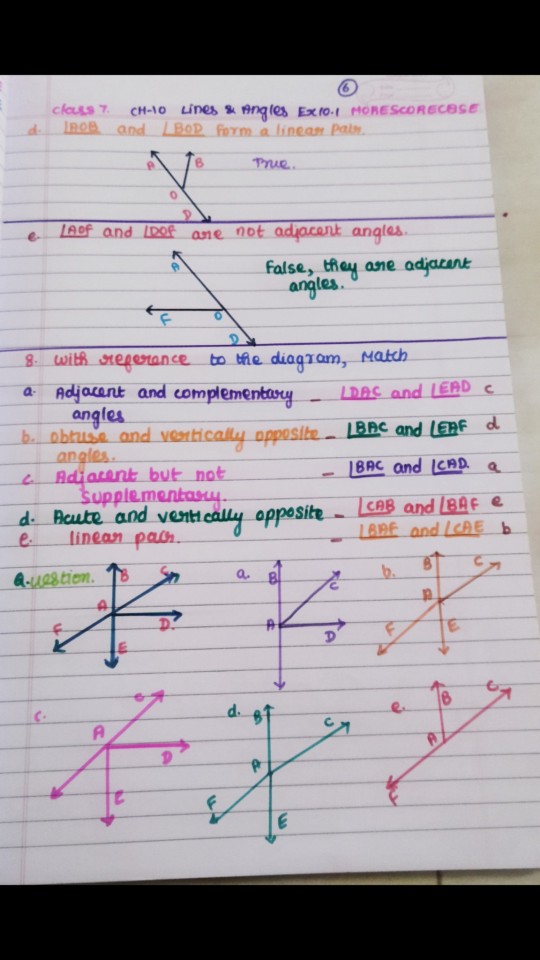 6
Class 7. CH-10 Lines & Angles Ex10.1 MORESCORECBSE
d. ∠AOB and ∠BOD form a linear pair.
A B True.
O
D
e. ∠AOF and ∠DOF are not adjacent angles.
A False, they are adjacent
angles.
F O
D
8. with referance to the diagram, Match
a. Adjacent and complementary - ∠DAC and ∠EAD c
angles
b. obtuse and vertically opposite - ∠BAC and ∠EAF d
angles.
c. Adjacent but not - ∠BAC and ∠CAD. a
supplementary.
d. Acute and vertically opposite - ∠CAB and ∠BAF e
e. linear pair. - ∠BAF and ∠CAE b
Question. B C a. B C b. B C
A A A
F D. D F
E E
c. C d. B C e. B C
A A A
D F F
E E